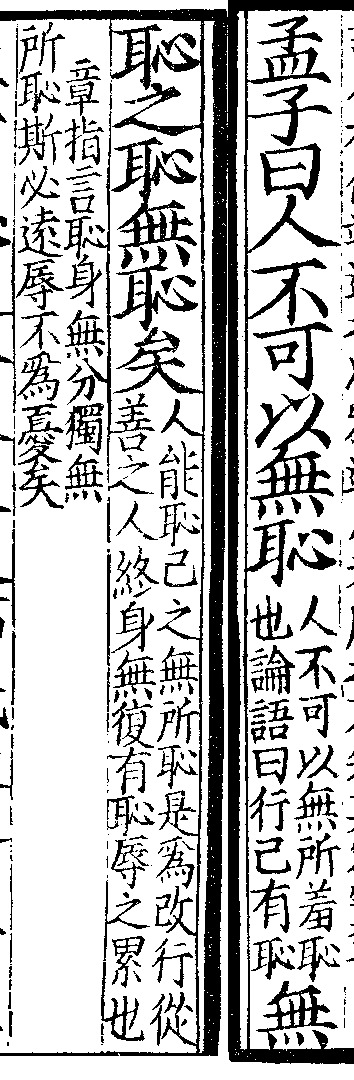 孟子曰人不可以無恥
人不可以無所羞恥
也論語曰行己有恥
無
恥之恥無恥矣
人能恥己之無所恥是爲改行從
善之人終身無復有恥辱之累也
章指言恥身無分獨無
所恥斯必遠辱不爲憂矣